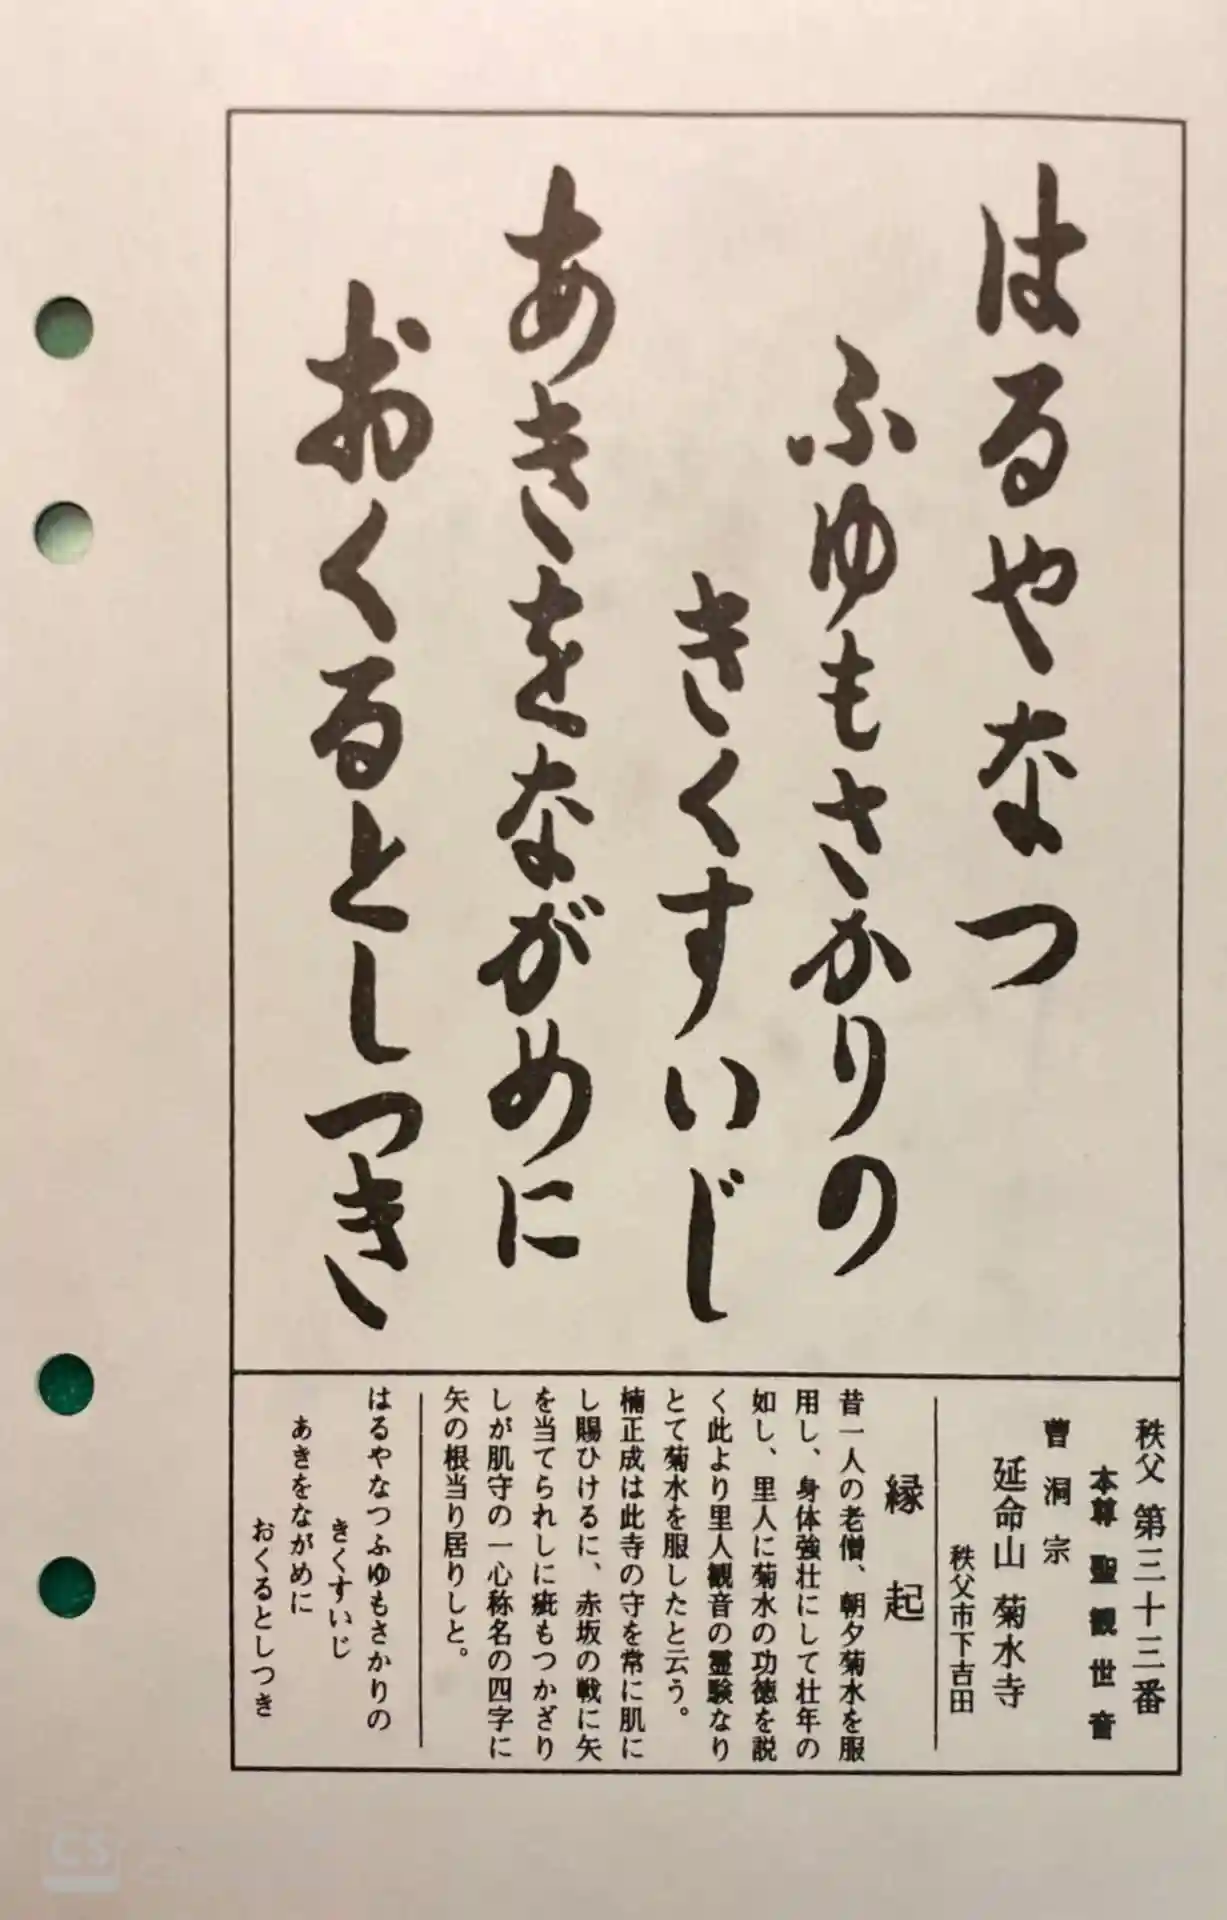 はるやなつ
ふゆもさかりの
きくすいじ
あきをながめに
おくるとしつき
秩父 第三十三番
本尊 聖観世音
曹洞宗
延命山 菊水寺
秩父市下吉田
縁起
昔一人の老僧、朝夕菊水を服
用し、身体強壮にして壮年の
如し、里人に菊水の功徳を説
く此より里人観音の霊験なり
とて菊水を服したと云う。
楠正成は此寺の守を常に肌に
し賜ひけるに、赤坂の戦に矢
を当てられしに疵もつかざり
しが肌守の一心称名の四字に
矢の根当り居りしと。
はるやなつふゆもさかりの
きくすいじ
あきをながめに
おくるとしつき
CS